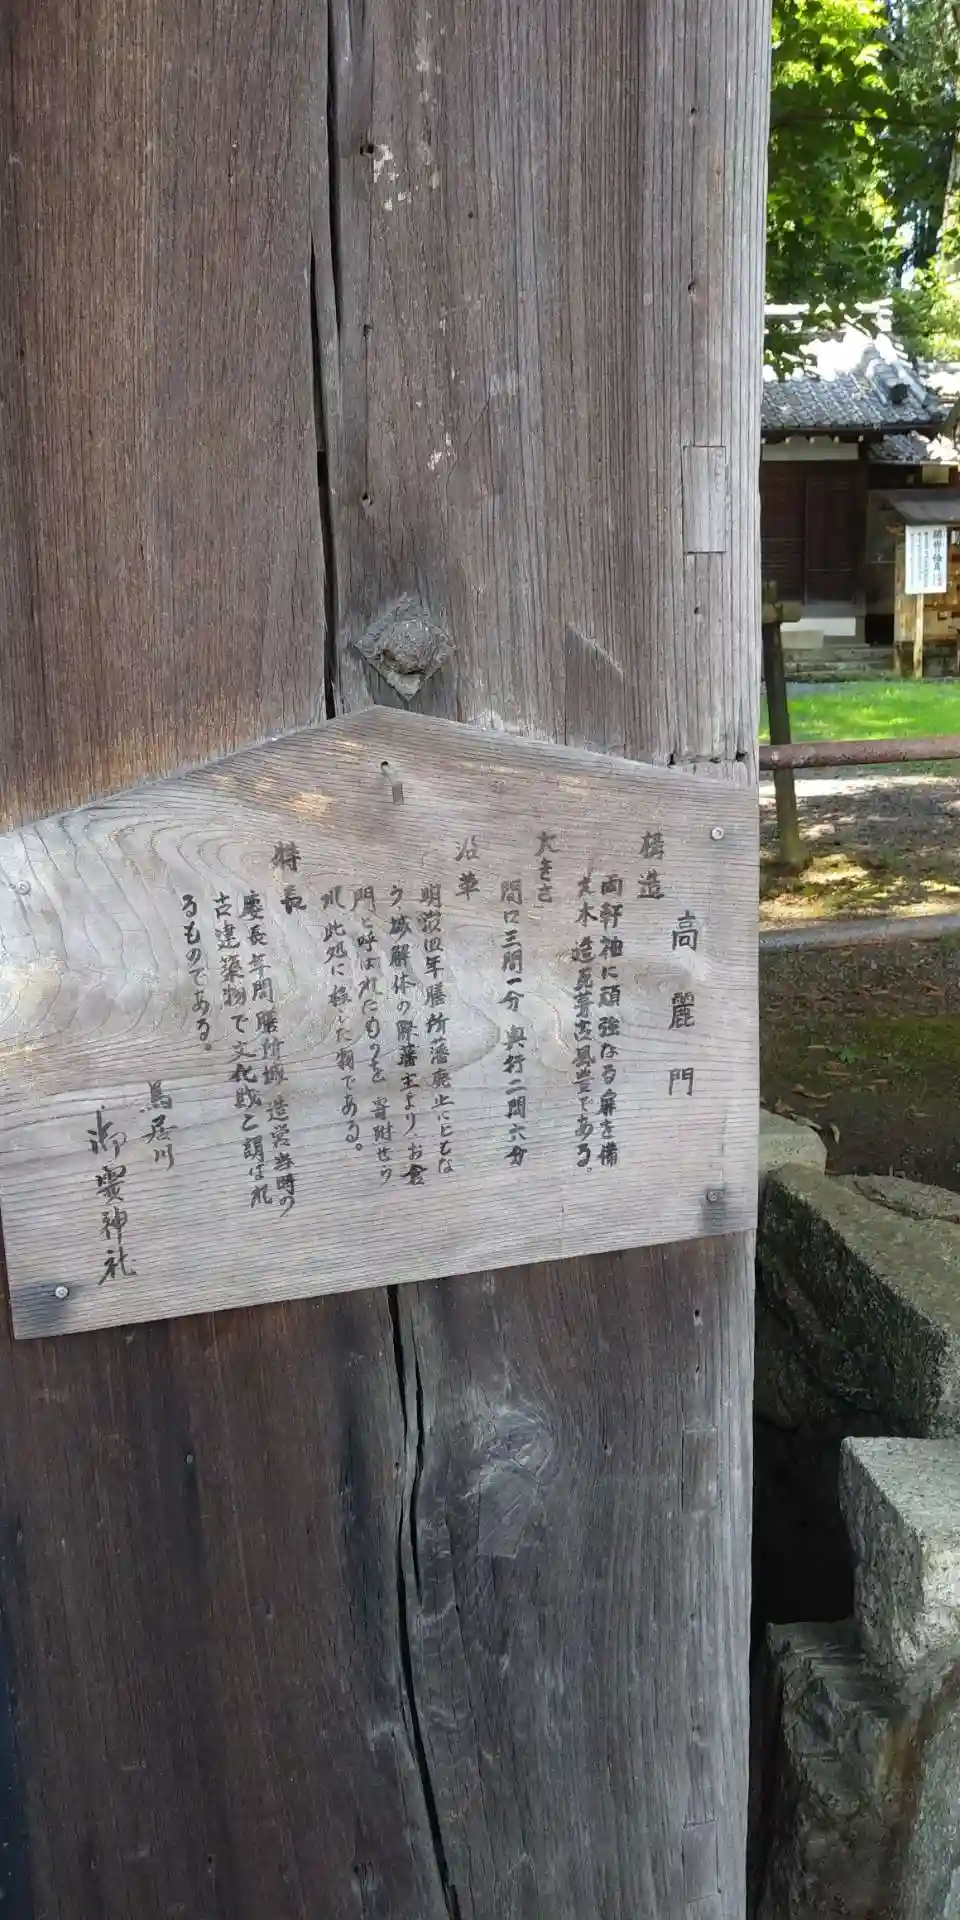 高麗門
構造
両軒袖に頑強なる扉を備
え木造瓦葺古風豊である。
大きさ
間口三間一分 奥行二間六分
沿革
明治四年膳所藩廃止にともな
う城解体の際藩主より お倉
門と呼ばれたものを寄附せら
れ 此処に移した物である。
特長
慶長年間膳所城造営当時の
古建築物で文化財と謂はれ
るものである。
鳥居川
御霊神社